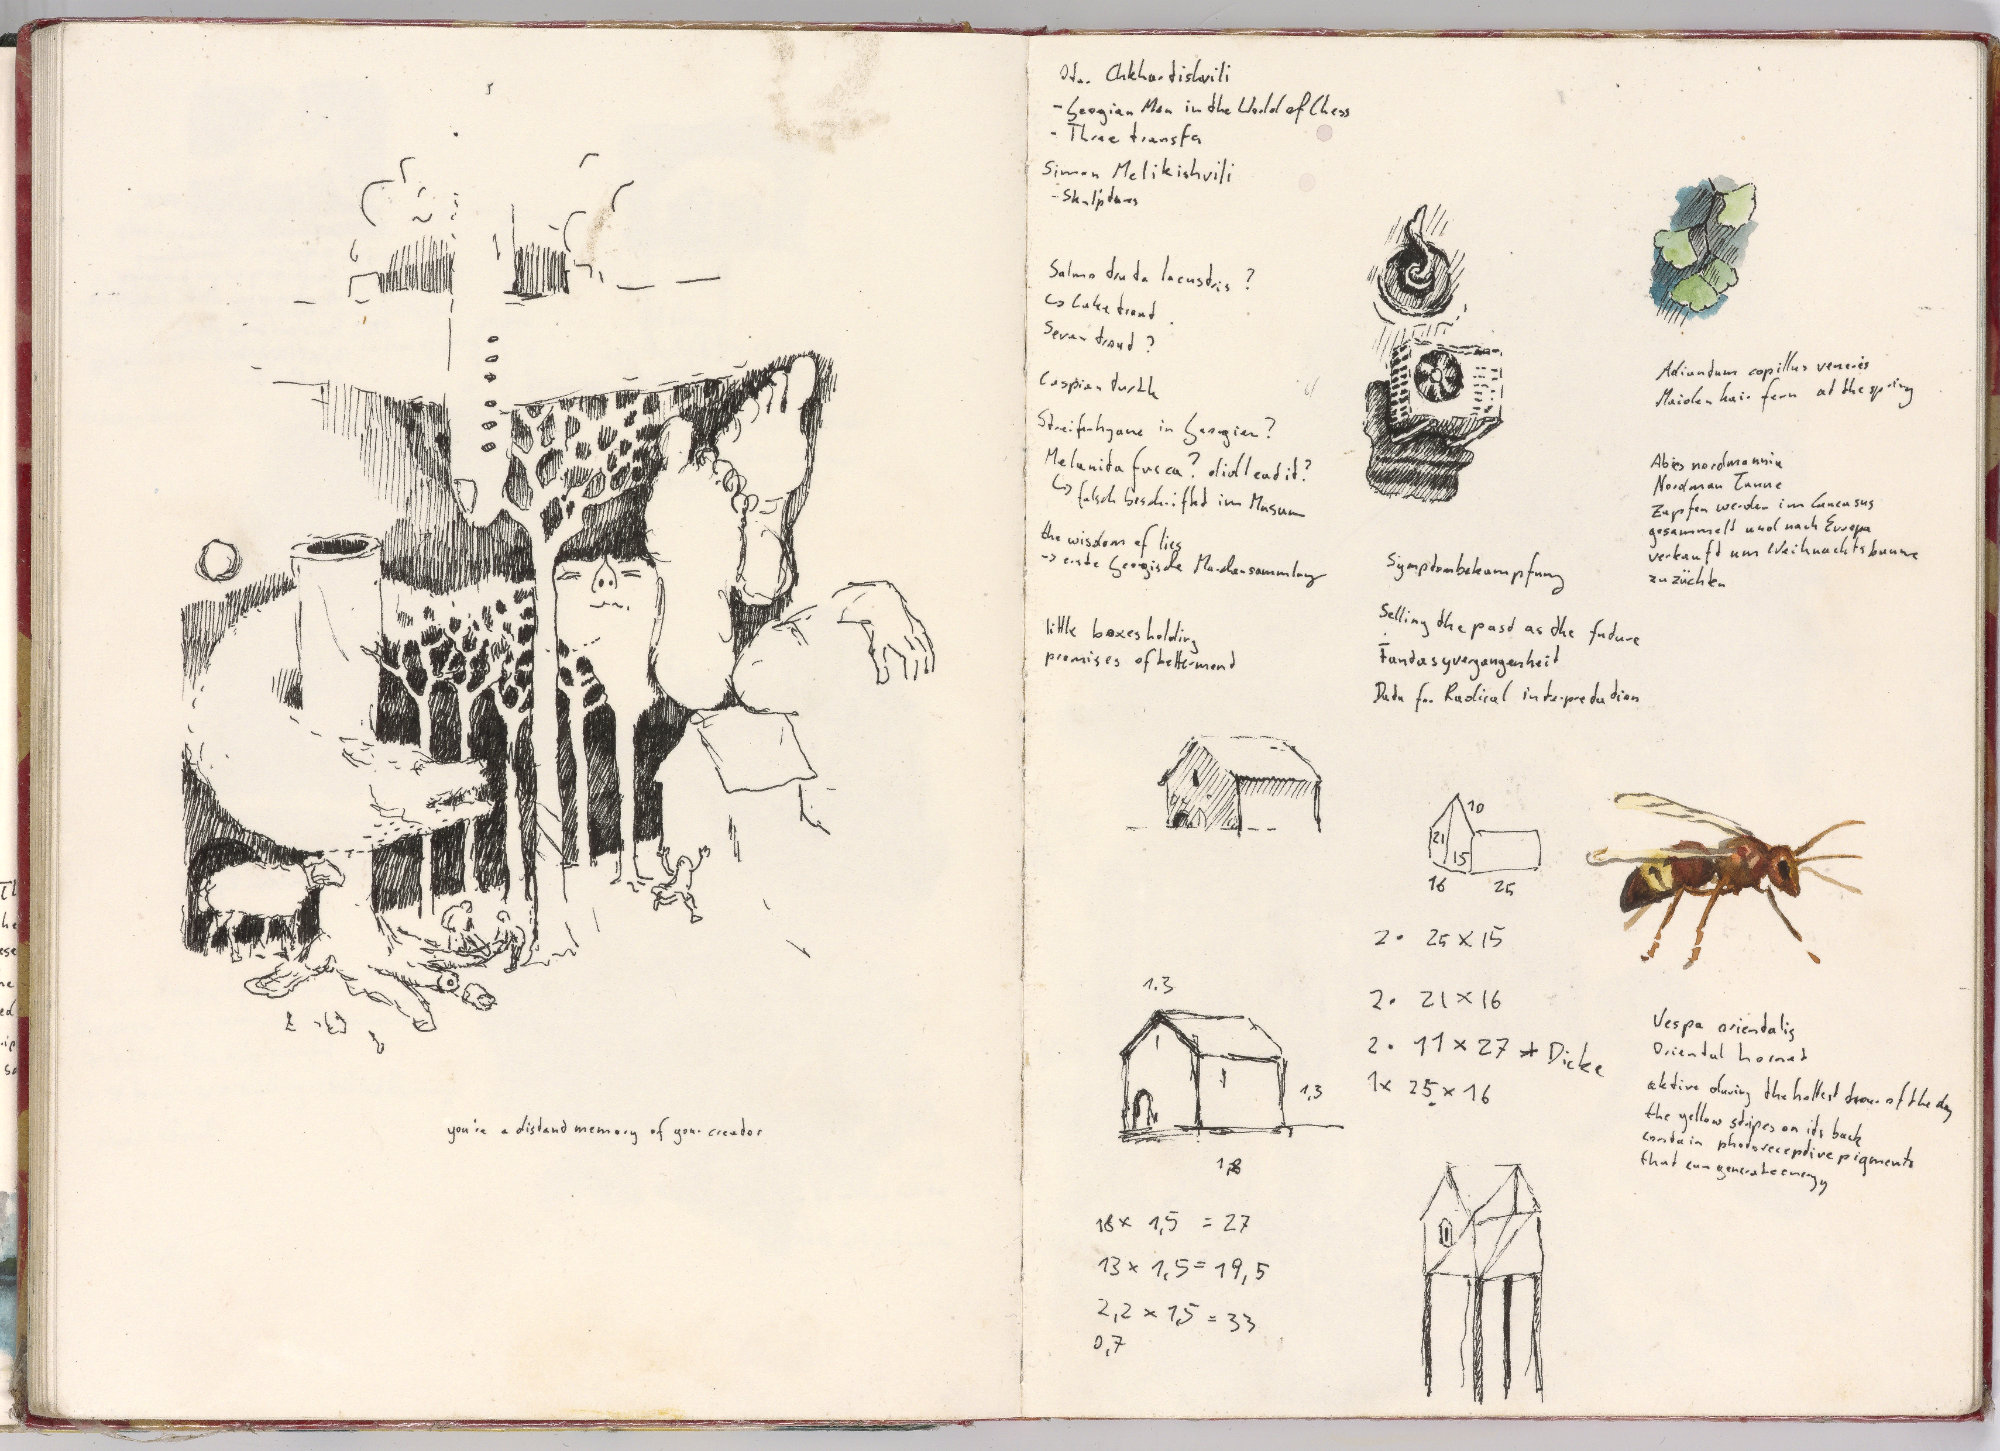 you're a distand memory of your creator
Chkhartishvili
- Georgian Men in the World of Chess
- Three transfa
Simon Melikishvili
- Skulptures
Salmo truta lacustris ?
↳ Lake troud
Sevan troud ?
Caspian turtle
Streifenhyäne in Georgien ?
Melanita fusca ? did I eat it ?
↳ falsch beschriftet im Museum
the wisdom of lies
→ erste Georgische Märchensammlung
little boxes holding
promises of betterment
Adiantum capillus veneris
Maidenhair fern at the spring
Abies nordmannia
Nordman Tanne
Zapfen werden im Caucasus
gesammelt und nach Europa
verkauft um Weihnachtsbäume
zu züchten
Symptombekämpfung
Selling the past as the future
Fantasyvergangenheit
Data for Radical interpretation
10
21
15
16 25
2 · 25 x 15
2 · 21 x 16
2 · 11 x 27 + Dicke
1x 25 x 16
1.3
1,3
1,8
18 x 1,5 = 27
13 x 1,5 = 19,5
2,2 x 1,5 = 33
0,7
Vespa orientalis
Oriental hornet
aktive during the hottest hour of the day
the yellow stripes on its back
contain photoreceptive pigments
that can generate energy